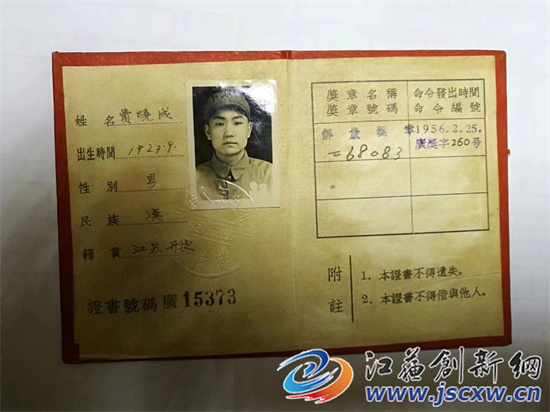 姓名 費曉成
出生時間 1923.9.
性別 男
民族 漢
籍貫 江苏 丹
證書號碼 廣 15373
獎章名稱 命令發出時間
獎章號碼 命令編號
解放獎章 1956.2.25.
68083 廣獎字260号
附註
1. 本證書不得遺失。
2. 本證書不得借與他人。
江蘇創新網
www.jscxw.cn